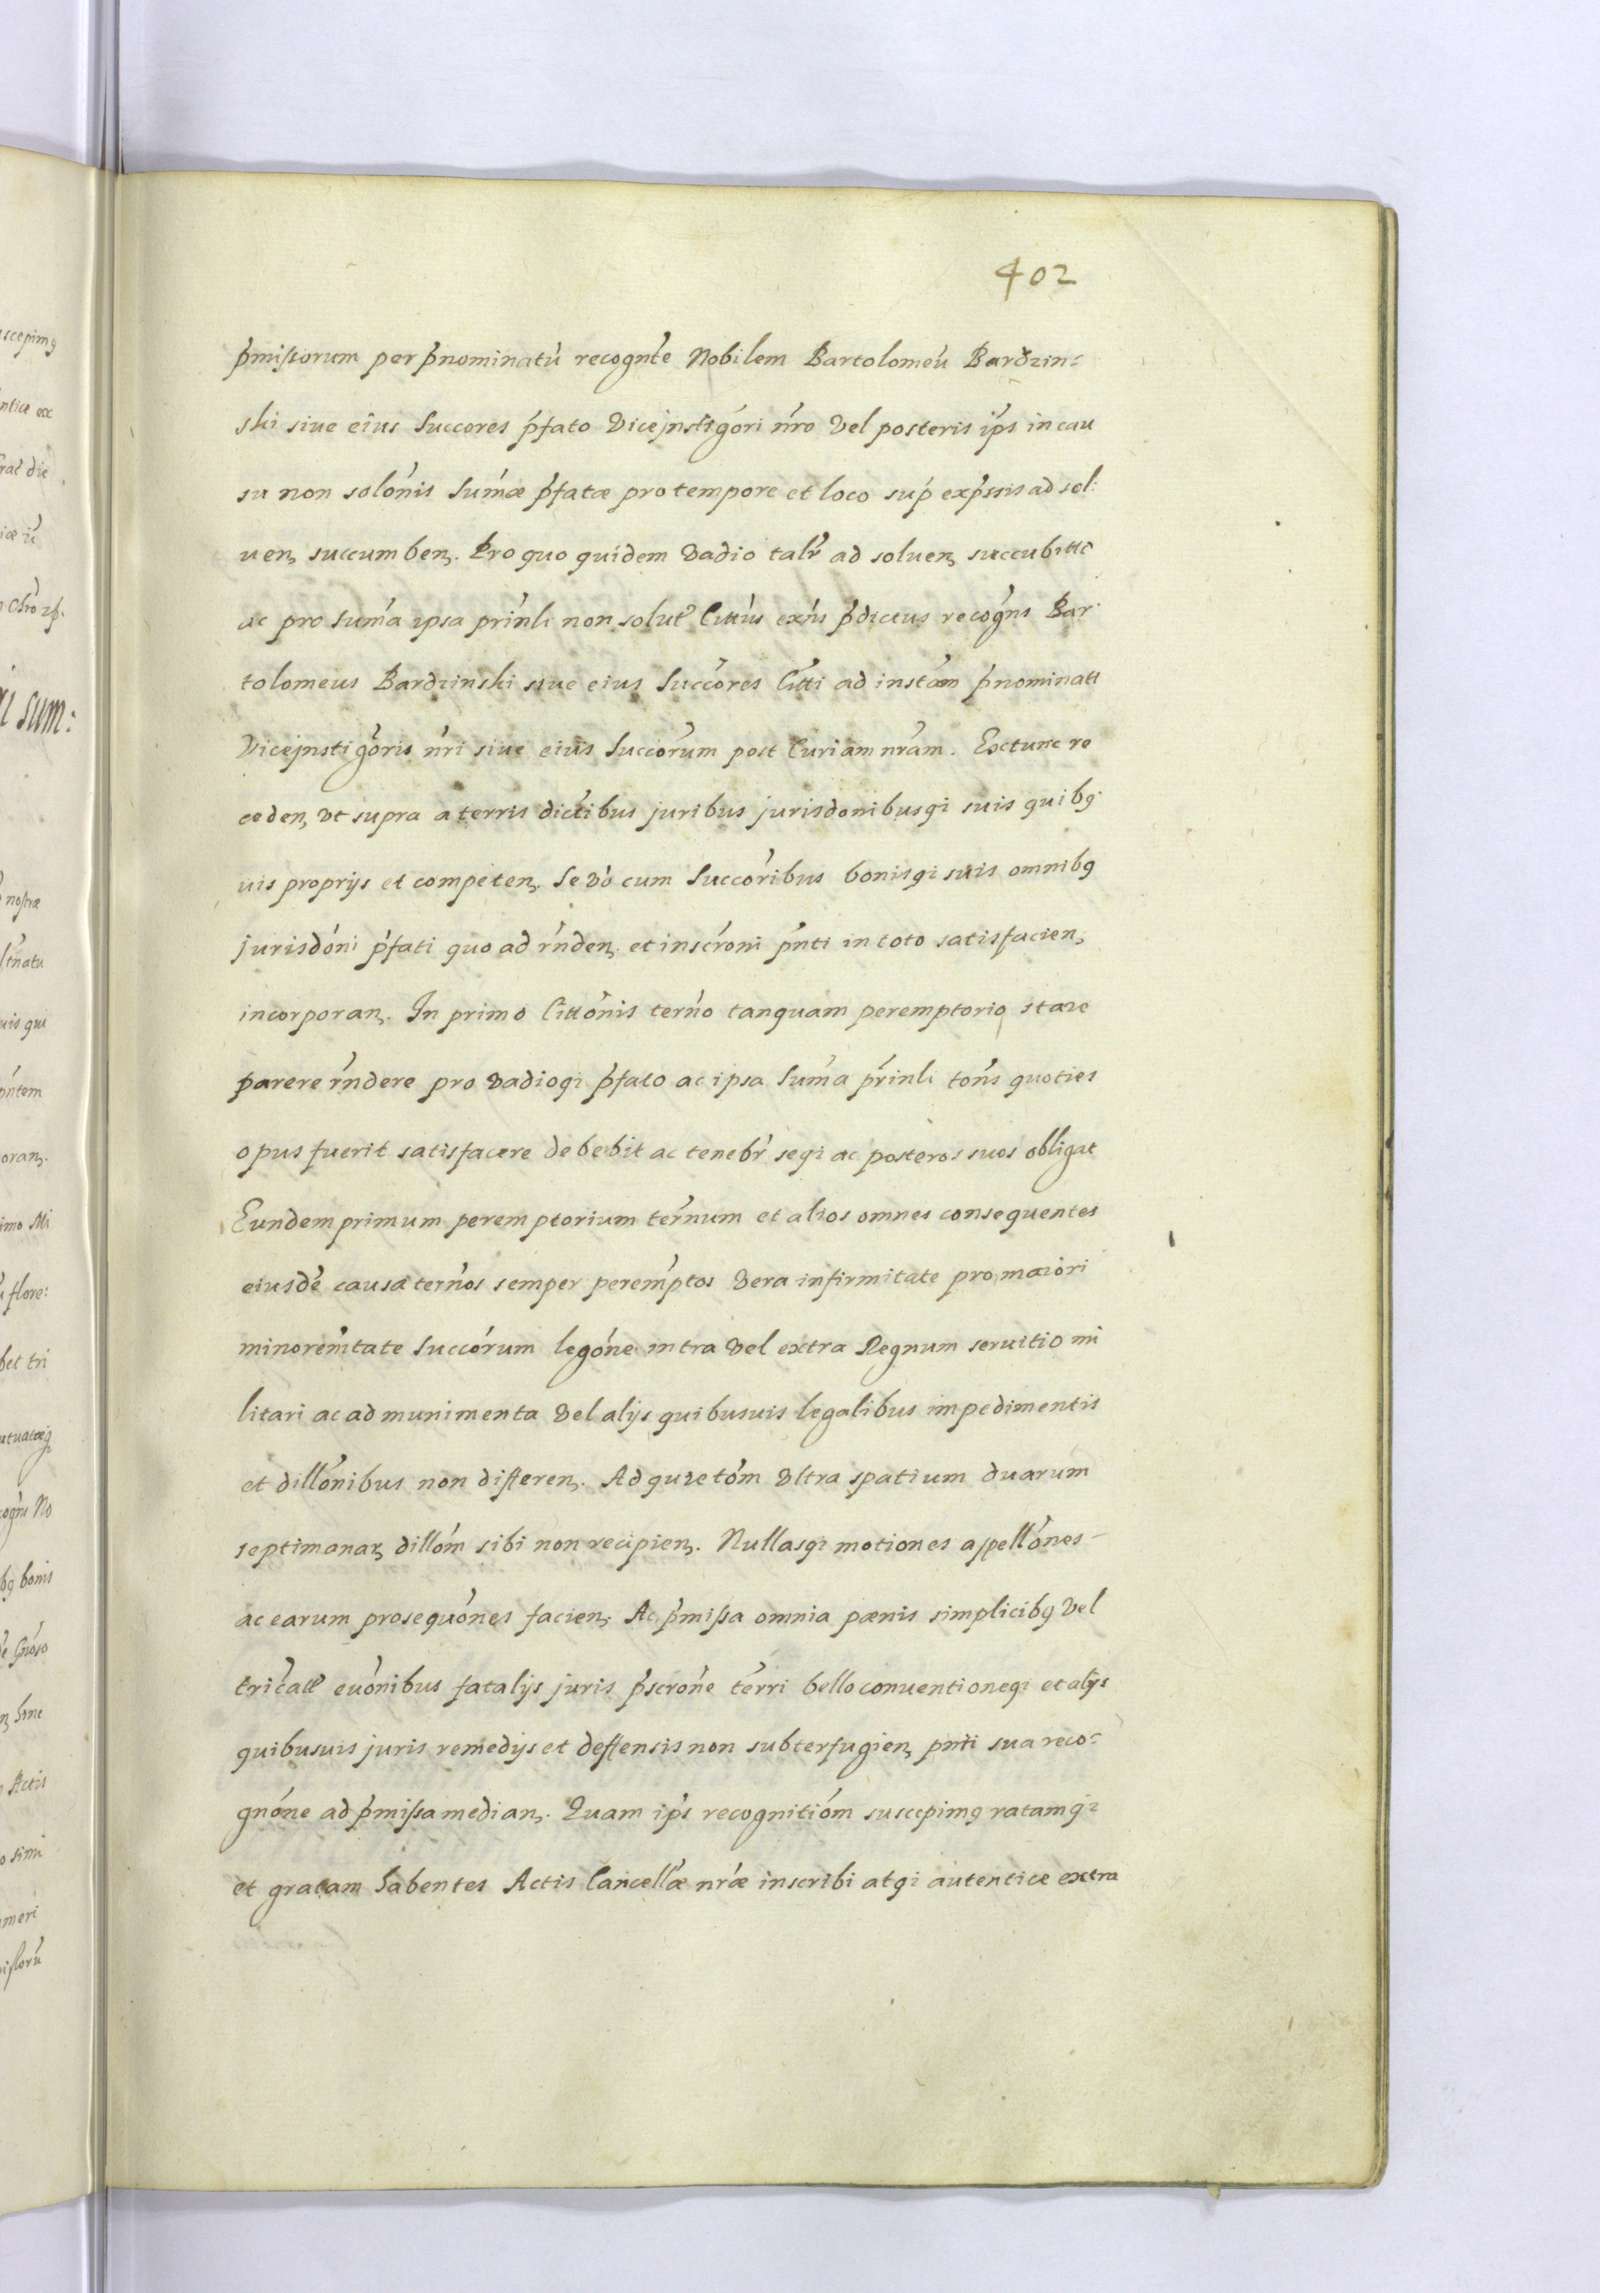 402
p̃missorum per p̃nominatũ recogñte Nobilem Bartolomeũ Bardzin=
ski siue eius Succores p̃fato Viceinstigõri ñro Vel posteris ip̃s in cau
su non solõnis Sum̃æ p̃fatæ pro tempore et loco sup̃ exp̃ssis ad sol:
uenȝ succumbenȝ. Pro quo quidem Vadio talr̃ ad soluenȝ succubitto
ac pro Sum̃a ipsa prin̄li non solut̃ Citt̃us exñs p̃dictus recogñs Bar
tolomeus Bardzinski siue eius Succõres Citt̃i ad instãm p̃nominati
Viceinstigõris ñri siue eius Succõrum post Curiam nr̃am. Extunc re
cedenȝ Vt supra a terris dictibus juribus jurisdonibusqi suis quibq
uis proprijs et competenȝ. Se Võ cum Succõribus bonisqi suis omnibq
jurisdõni p̃fati quo ad r̃ndenȝ et inscrõni p̃nti in toto satisfacienȝ
incorporanȝ. In primo Cittõnis terño tanquam peremptorio stare
parere r̃ndere pro Vadioqi p̃fato ac ipsa Sum̃a pr̃inli tõns quoties
opus fuerit satisfacere debebit ac tenebr̃ seqi ac posteros suos obligat
Eundem primum peremptorium ter̃num et alios omnes consequentes
eiusdẽ causa ter̃nos semper perem̃ptos Vera infirmitate pro maiori
minoreñitate Succõrum legõne intra Vel extra Regnum seruitio mi
litari ac ad munimenta Vel alijs quibusuis legalibus impedimentis
et dillõnibus non differenȝ. Ad quietõm Vltra spatium duarum
septimanarȝ dillõm sibi non recipienȝ. Nullasqi motiones appellõnes
ac earum prosequõnes facienȝ. Ac p̃missa omnia pænis simplicibq Vel
euõnibus fatalijs juris p̃scrõne terri bello conuentioneqi et alijs
quibusuis juris remedijs et deffensis non subterfugienȝ pñti sua reco=
gnõne ad p̃missa medianȝ. Quam ip̃s recognitiõm suscepimq ratamqi
et gratam habentes Actis Cancellæ nr̃æ inscribi atqi autentice extra